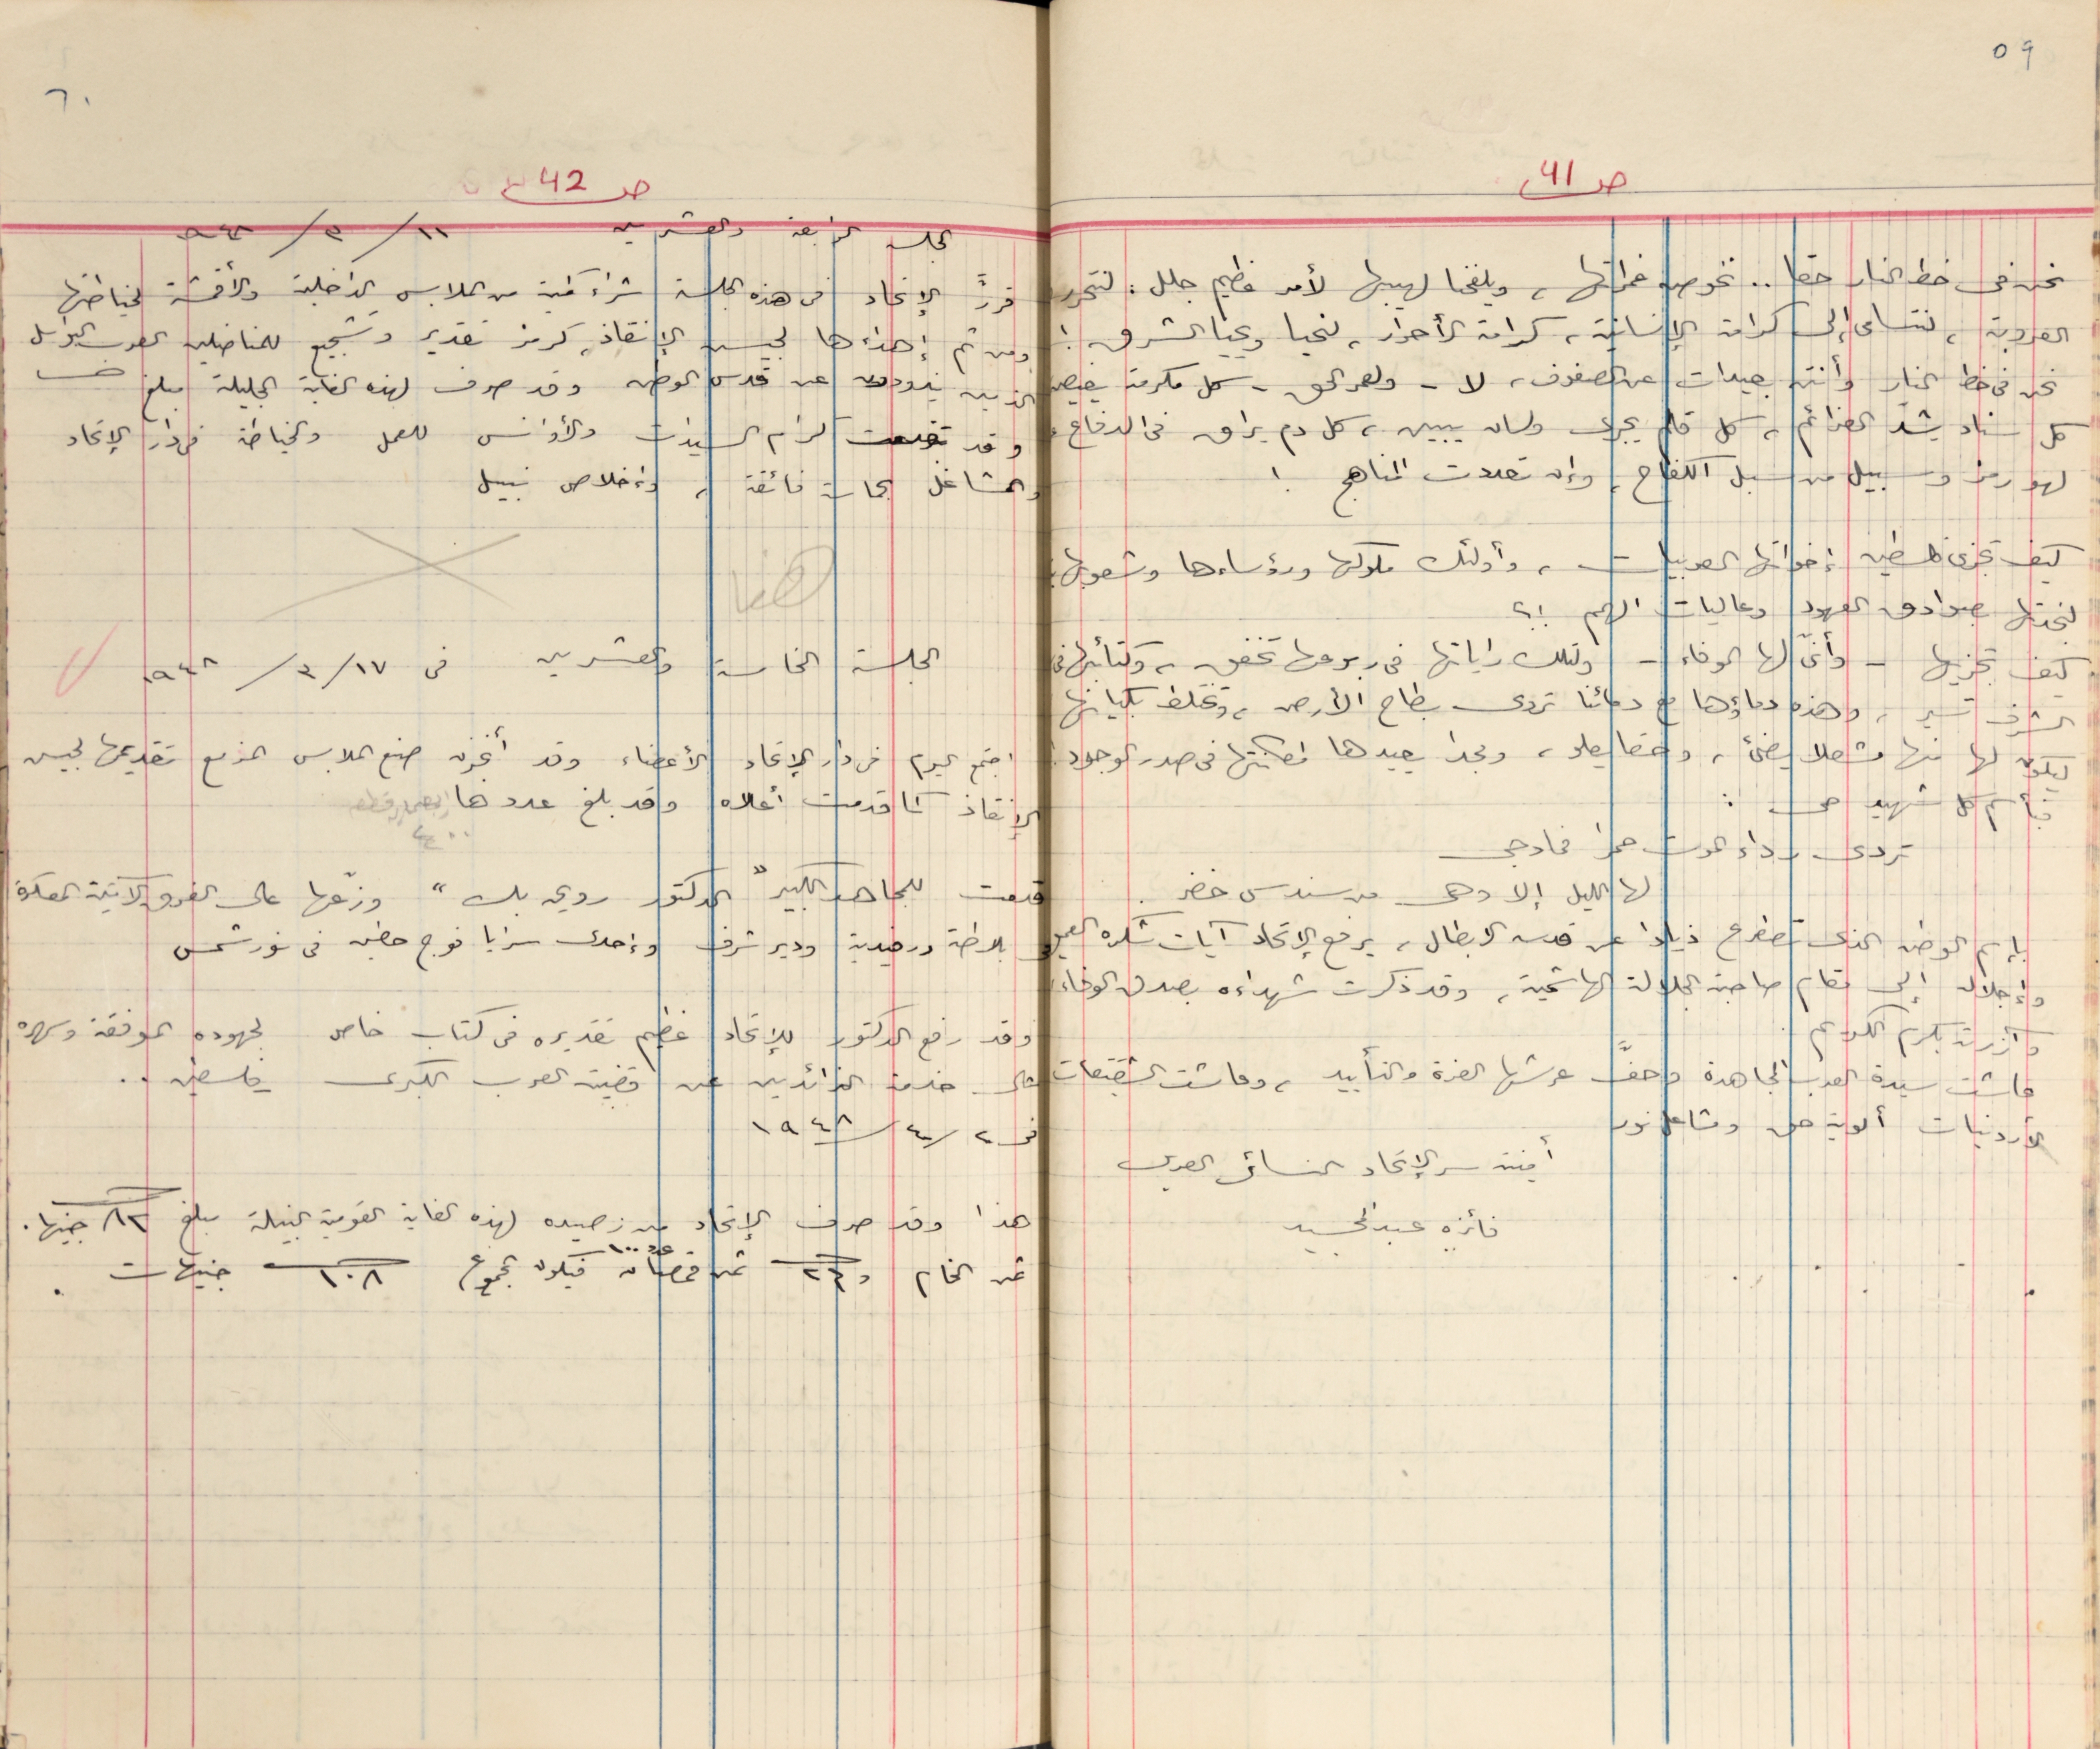 ٥٩
ص 41
نحن في خط النار حقا .. نخوض غمراتها ، ويلفحنا لهيبها لأمر عظيم جلل : لتتحرر
العروبة ، لنتسامى إلى كرامة الإنسانية ، كرامة الأحرار ، لنحيا ويحيا الشرق !
نحن في خط النار وأنتن بعيدات عن الصفوف ، لا - ولعمر الحق - كل مكرمة
كل سناد يشد العزائم ، كل قلم يجري ولسان يبين ، كل دم يراق في الدفاع
لهو رمز وسبيل من سبل الكفاح ، وإن تعددت المناهج !
كيف تجزي فلسطين إخواتها العربيات ، وأولئك ملوكها ورؤساءها وشعوبها
لنجدتها صوادق العهود وعاليات الهمم !؟
كيف تجزيها - وأنّى لها الوفاء - وتلك راياتها في ربوعها تخفق ، وكتائبها في
الشرف تسير ، وهذه دماؤها مع دمائنا تروى بطاح الأرض ، وتختلط بكيانها
ليكون لها منها مشعلا يضئ ، وحقا يعلو ، ومجدا يعيدها لمكانتها في صدر الوجود !
فبأسم كل شهيد حي :
تردى رداء الموت حمرا فما دجى
لها الليل إلا وهي من سندس خضر .
بإسم الوطن الذي تضرج ذيادا عن قدسه الابطال ، يرفع الإتحاد آيات شكره العميق
وإجلاله إلى مقام صاحبة الجلالة الهاشمية ، وقد ذكرت شهداءه بصدق الوفاء
وآزرت بكرم الكريم .
عاشت سيدة العرب المجاهدة وحفّ عرشها العزة والتأييد ، وعاشت الشقيقات
الأردنيات ألوية حق ومشاعل نور
أمينة سر الإتحاد النسائي العربي
فائزه عبد المجيد
٦٠
ص 42
الجلسة الرابعة والعشرين ١١ / ٣ / ٩٤٨
قررّ الإتحاد في هذه الجلسة شراء كمية من الملابس الداخلية والأقمشة لخياطتها
ومن ثم إهداءها لجيش الإنقاذ ، كرمز تقدير وتشجيع للمناضلين العرب البواسل
الذين يذودون عن قدس الوطن وقد صرف لهذه الغاية الجليلة مبلغ
وقد تقدمت كرام السيدات والأوانس للعمل والخياطة في دار الإتحاد
والمشاغل بحماسة فائقة ، وإخلاص نبيل
هنا
الجلسة الخامسة والعشرين في ١٧ / ٣ / ١٩٤٨
اجتمع اليوم في دار الإتحاد الأعضاء وقد أنجزن صنع الملابس المزمع تقديمها لجيش
الإنقاذ كما قدمت أعلاه وقد بلغ عددها اربعماية قطعه
٤٠٠
قدمت للمجاهد الكبير " الدكتور روي بك " وزّعها على الفرق الآتية المعسكرة
في بلاطة ورفيدية ودير شرف وإحدى سرايا فوج حطين في نور شمس
وقد رفع الدكتور للإتحاد عظيم تقديره في كتاب خاص لجهوده الموفقة وسهره
على خدمة الذائدين عن قضية العرب الكبرى فلسطين ..
في ٢ / ٤ / ١٩٤٨
هذا وقد صرف الإتحاد من رصيده لهذه الغاية القومية النبيلة مبلغ ٨٢ جنيها .
ثمن الخام و ٢٦ ثمن قمصان عدد ١٠٠ فيكون مجموع ١٠٨ جنيهات .